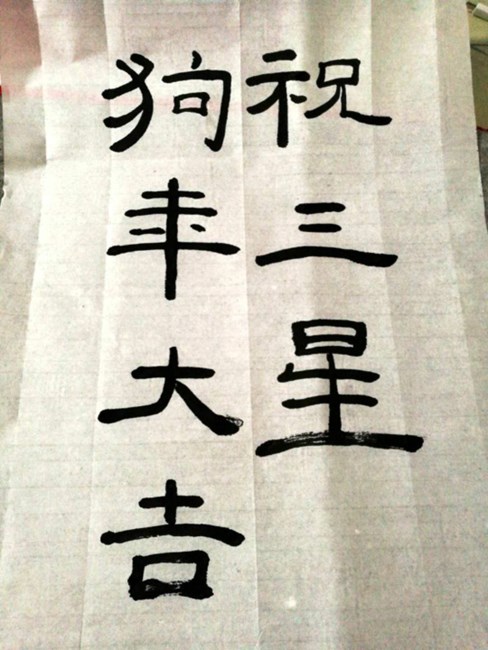 祝三星
狗年大吉